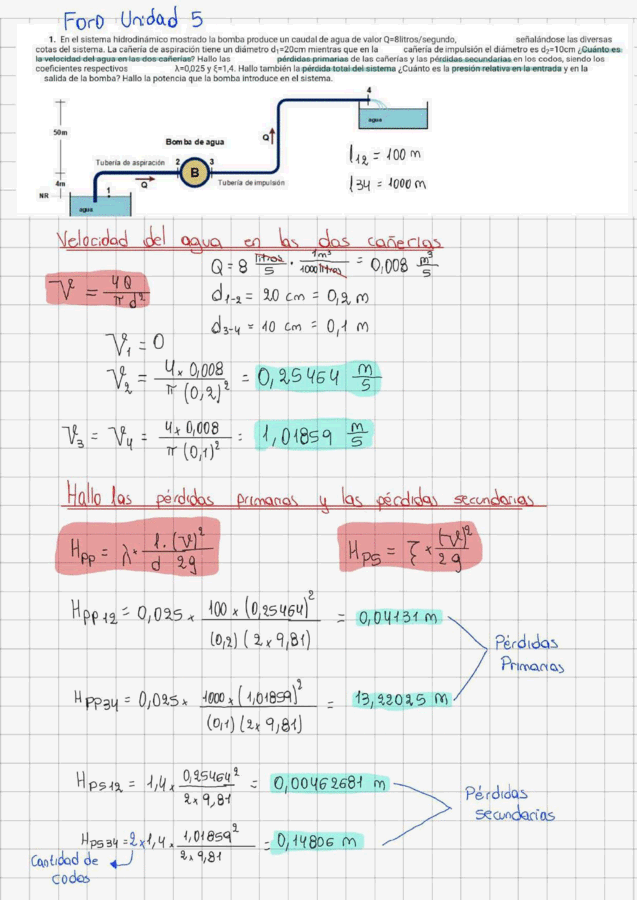 Foro Unidad 5
1. En el sistema hidrodinámico mostrado la bomba produce un caudal de agua de valor Q=8litros/segundo, señalándose las diversas
cotas del sistema. La cañería de aspiración tiene un diámetro d₁=20cm mientras que en la cañería de impulsión el diámetro es d₂=10cm ¿Cuánto es
la velocidad del agua en las dos cañerías? Hallo las pérdidas primarias de las cañerías y las pérdidas secundarias en los codos, siendo los
coeficientes respectivos λ=0,025 y ξ=1,4. Hallo también la pérdida total del sistema ¿Cuánto es la presión relativa en la entrada y en la
salida de la bomba? Hallo la potencia que la bomba introduce en el sistema.
4
agua
50m
Bomba de agua
Q
Tubería de aspiración
2
3
B
4m
Q
Tubería de impulsión
NR
1
agua
l₁₂ = 100 m
l₃₄ = 1000 m
Velocidad del agua en las dos cañerías
Q = 8 litros/s · 1m³/1000 litros = 0,008 m³/s
V = 4Q/π d²
d₁₋₂ = 20 cm = 0,2 m
d₃₋₄ = 10 cm = 0,1 m
V₁ = 0
V₂ = 4 x 0,008/π (0,2)² = 0,25464 m/s
V₃ = V₄ = 4 x 0,008/π (0,1)² = 1,01859 m/s
Hallo las pérdidas primarias y las pérdidas secundarias
Hpp = λ * l · (v)²/d 2g
Hps = ξ * (v)²/2g
Hpp12 = 0,025 x 100 x (0,25464)²/(0,2) (2 x 9,81) = 0,04131 m
Pérdidas
Primarias
Hpp34 = 0,025 x 1000 x (1,01859)²/(0,1) (2x 9,81) = 13,22025 m
Hps12 = 1,4 x 0,25464²/2 x 9,81 = 0,00462681 m
Pérdidas
secundarias
Hps34 = 2 x 1,4 x 1,01859²/2 x 9,81 = 0,14806 m
Cantidad de
codos